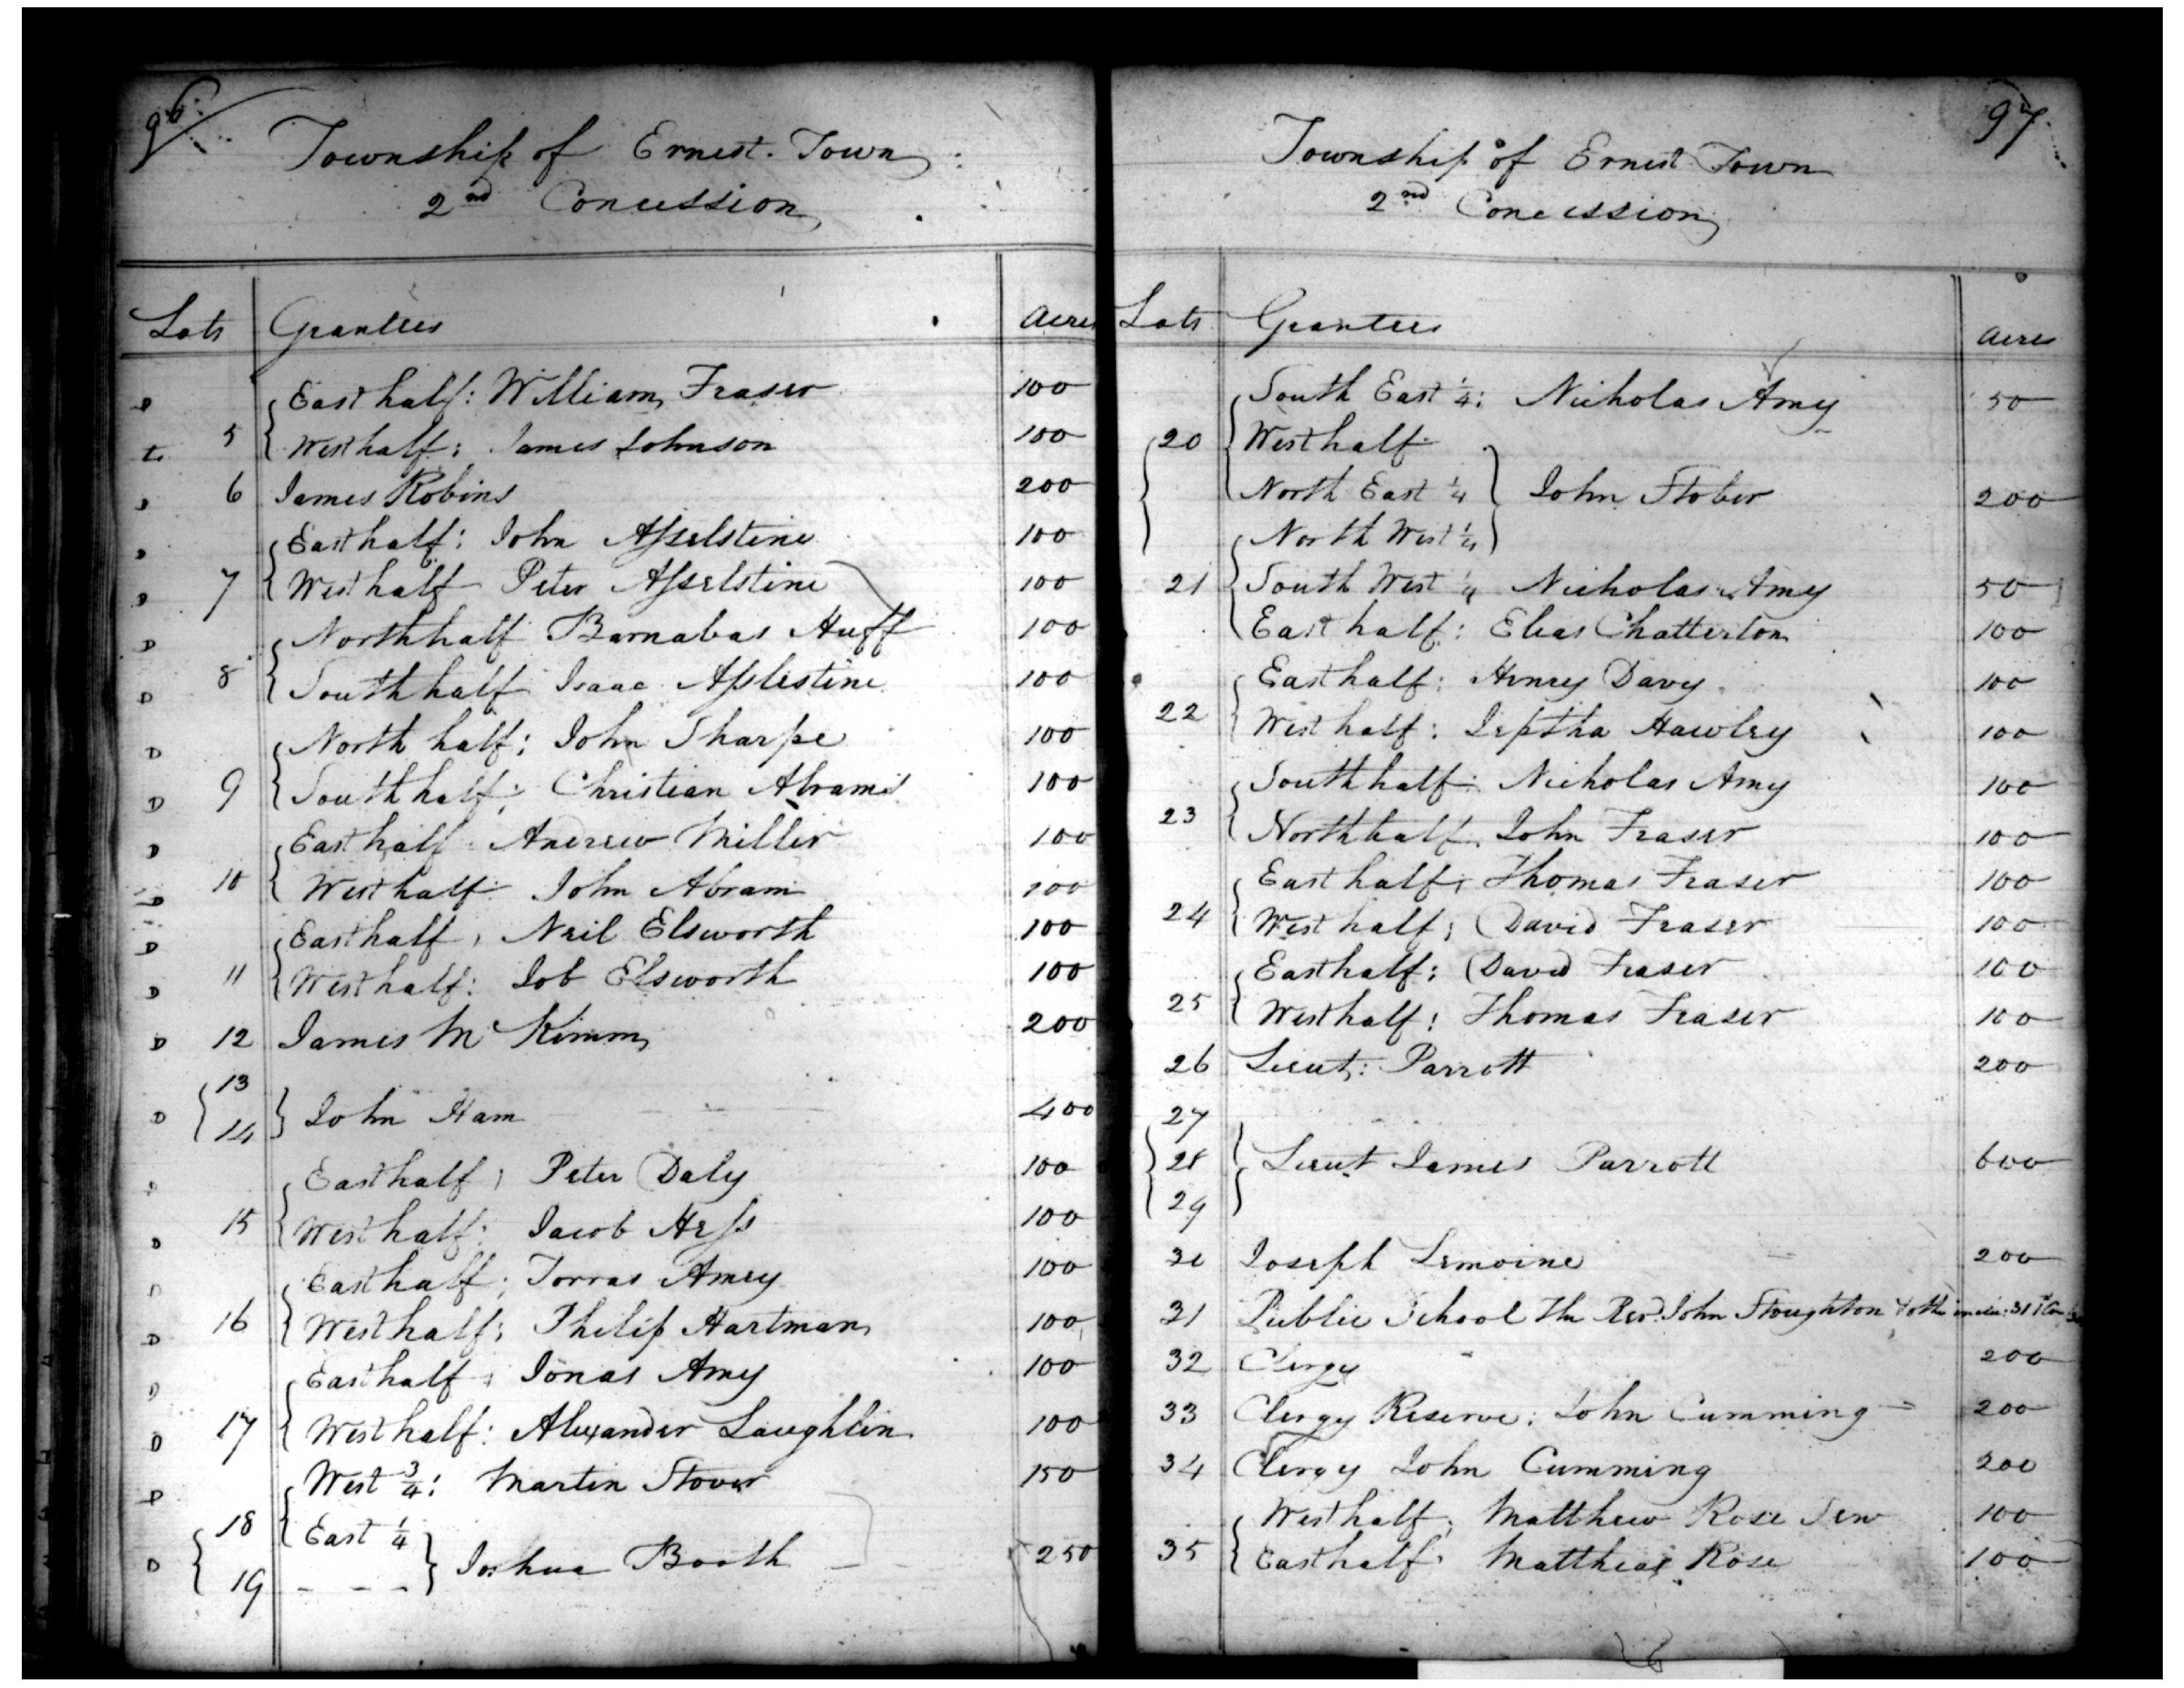 96
Township of Ernest Town
2nd Concession
Lots Grantees Acres
East half: William Fraser 100
5 West half: James Johnson 100
6 James Robins 200
East half: John Asselstine 100
7 West half Peter Asselstine 100
North half Barnabas Huff 100
8 South half Isaac Asslestine 100
North half: John Sharpe 100
9 South half: Christian Abrams 100
East half Andrew Miller 100
10 West half John Abram 100
East half, Neil Elsworth 100
11 West half: Job Elsworth 100
12 James Mc Kimm 200
13
14 John Ham 400
East half; Peter Daly 100
15 West half: Jacob Hess 100
East half; Amey 100
16 West half; Philip Hartman 100
East half; Jonas Amy 100
17 West half: Alexander Laughlin 100
West 3/4: Martin Stover 150
18 East 1/4
19 - - - Joshua Booth 250
97
Township of Ernest Town
2nd Concession
Lots Grantees Acres
South East 1/4: Nicholas Amy 50
20 West half
North East 1/4 John Stober 200
North West 1/4
21 South West 1/4 Nicholas Amy 50
East half: Elias Chatterton 100
East half: Henry Davy 100
22 West half: Jeptha Hawley 100
South half: Nicholas Amy 100
23 North half, John Fraser 100
East half; Thomas Fraser 100
24 West half; David Fraser 100
East half: David Fraser 100
25 West half: Thomas Fraser 100
26 Lieut: Parrott 200
27
28 Lieut James Parrott 600
29
30 Joseph Lemoine 200
31 Public School The Revd John Stoughton
32 Clergy 200
33 Clergy Reserve: John Cumming 200
34 Clergy John Cumming 200
West half; Matthew Rose Sen 100
35 East half Matthias Rose 100